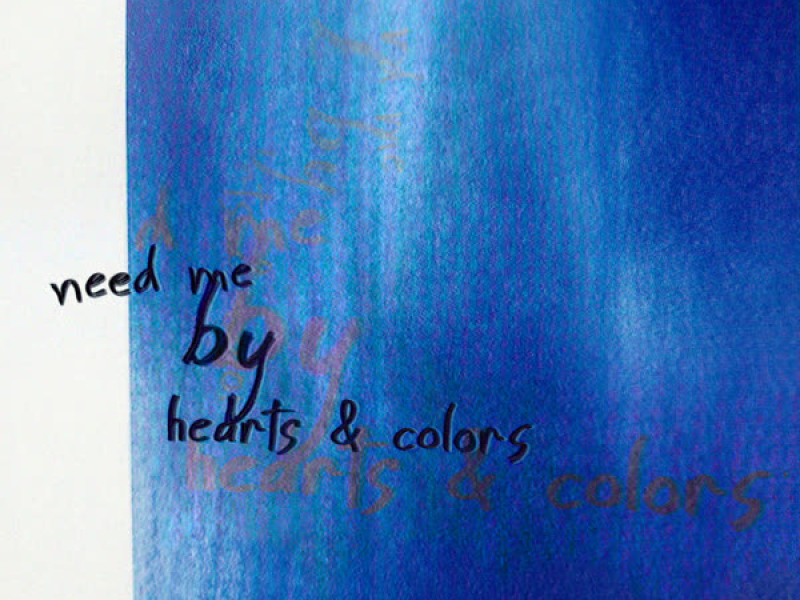 need me
by
hearts & colors
by
hearts & colors